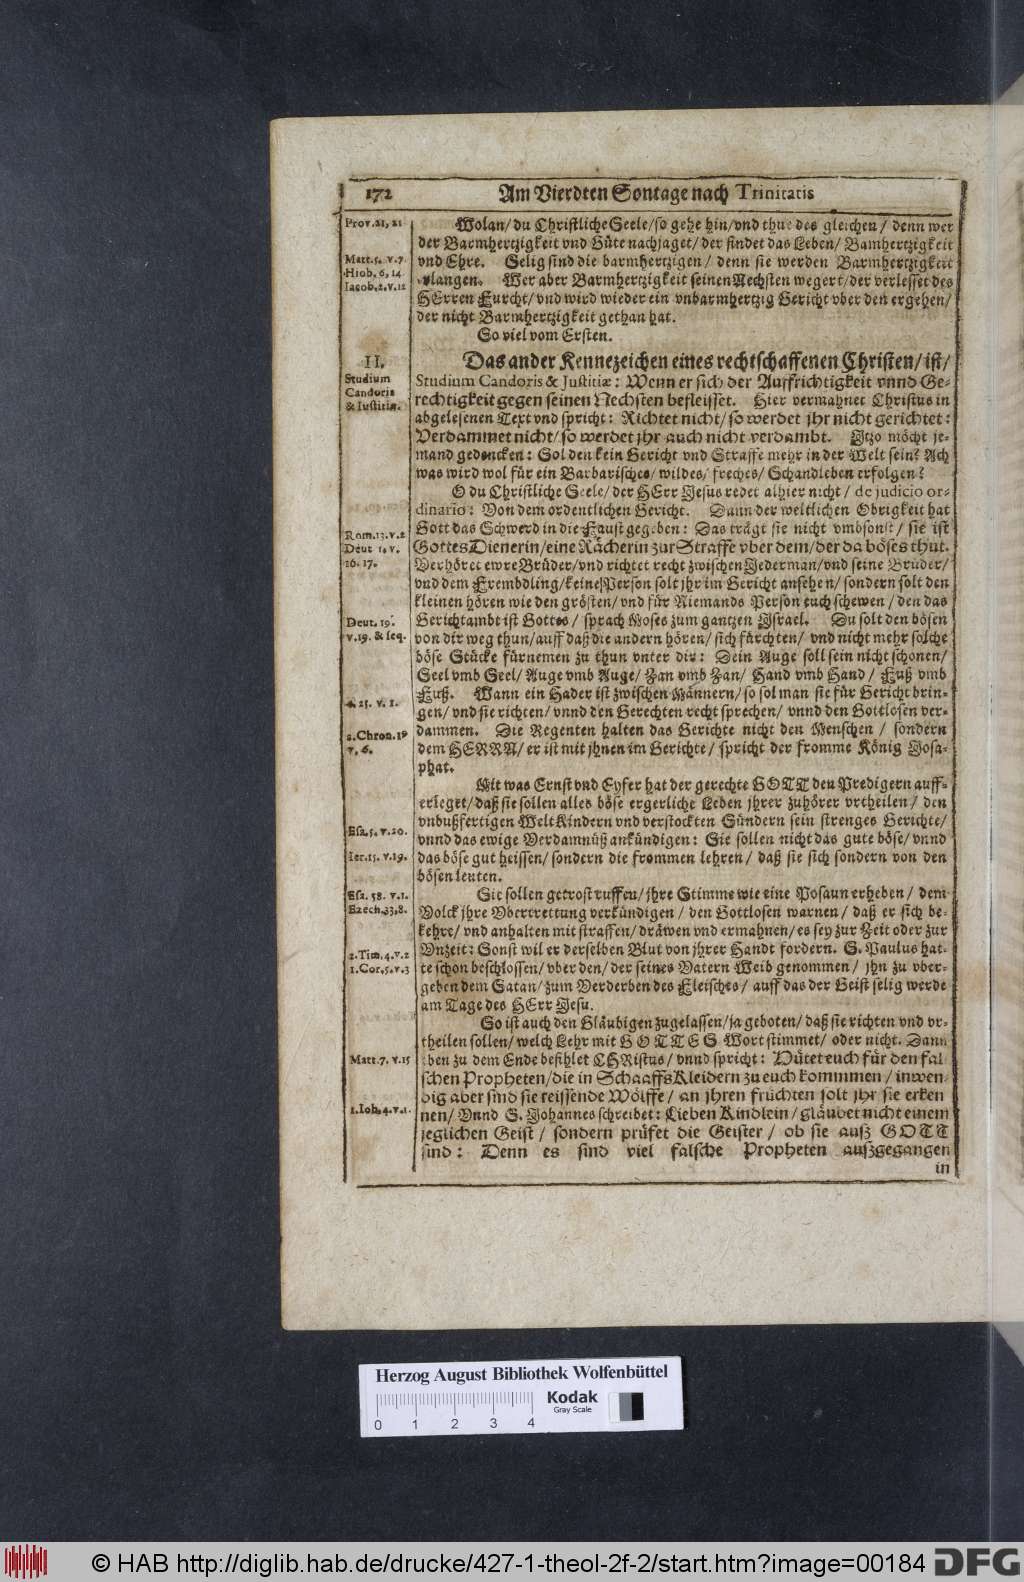 172 Am Vierdten Sontage nach Trinitatis
Prov. 21, 21
Wolan/ du Christliche Seele/ so gehe hin/ vnd thue des gleichen/ denn wer
der Barmhertzigkeit vnd Güte nachjaget/ der findet das Leben/ Bamhertzigkeit
Matt. 5. v. 7.
vnd Ehre. Selig sind die barmhertzigen/ denn sie werden Barmhertzigkeit
Hiob. 6, 14
Iacob. 2. v. 12
erlangen. Wer aber Barmhertzigkeit seinen Nechsten wegert/ der verlesset des
HErren Furcht/ vnd wird wieder ein vnbarmhertzig Gericht vber den ergehen/
der nicht Barmhertzigkeit gethan hat.
So viel vom Ersten.
II.
Das ander Kennezeichen eines rechtschaffenen Christen/ ist/
Studium
Candoris
& Iustitiæ.
Studium Candoris & Justitiæ: Wenn er sich der Auffrichtigkeit vnnd Ge-
rechtigkeit gegen seinen Nechsten befleisset. Hier vermahnet Christus in
abgelesenen Text vnd spricht: Richtet nicht/ so werdet jhr nicht gerichtet:
Verdammet nicht/ so werdet jhr auch nicht verdambt. Itzo möcht je-
mand gedencken: Sol den kein Gericht vnd Straffe mehr in der Welt sein? Ach
was wird wol für ein Barbarisches/ wildes/ freches/ Schandleben erfolgen?
O du Christliche Seele/ der HErr Jesus redet alhier nicht/ de judicio or-
dinario: Von dem ordentlichen Gericht. Dann der weltlichen Obrigkeit hat
Rom. 13. v. 2
Gott das Schwerd in die Faust gegeben: Das trägt sie nicht vmbsonst/ sie ist
Deut 1. v.
16. 17.
Gottes Dienerin/ eine Rächerin zur Straffe vber dem/ der da böses thut.
Verhöret ewre Brüder/ vnd richtet recht zwischen Jederman/ vnd seine Brüder/
vnd dem Frembdling/ keine Person solt jhr im Gericht ansehen/ sondern solt den
kleinen hören wie den grösten/ vnd für Niemands Person euch schewen/ den das
Deut. 19.
v. 19. & seq.
Gerichtambt ist Gottes/ sprach Moses zum gantzen Israel. Du solt den bösen
von dir weg thun/ auff daß die andern hören/ sich fürchten/ vnd nicht mehr solche
böse Stücke fürnemen zu thun vnter dir: Dein Auge soll sein nicht schonen/
Seel vmb Seel/ Auge vmb Auge/ Zan vmb Zan/ Hand vmb Hand/ Fuß vmb
25. v. 1.
Fuß. Wann ein Hader ist zwischen Männern/ so sol man sie für Gericht brin-
gen/ vnd sie richten/ vnnd den Gerechten recht sprechen/ vnnd den Gottlosen ver-
2. Chron. 19
v. 6.
dammen. Die Regenten halten das Gerichte nicht den Menschen/ sondern
dem HERRN/ er ist mit jhnen im Gerichte/ spricht der fromme König Josa-
phat.
Mit was Ernst vnd Eyfer hat der gerechte GOTT den Predigern auff-
erleget/ daß sie sollen alles böse ergerliche Leben jhrer zuhörer vrtheilen/ den
vnbußfertigen WeltKindern vnd verstockten Sündern sein strenges Gerichte/
Esa. 5. v. 20.
vnnd das ewige Verdamnüß ankündigen: Sie sollen nicht das gute böse/ vnnd
Ier. 15. v. 19.
das böse gut heissen/ sondern die frommen lehren/ daß sie sich sondern von den
bösen leuten.
Esa. 58. v. 1.
Ezech. 33, 8.
Sie sollen getrost ruffen/ jhre Stimme wie eine Posaun erheben/ dem
Volck jhre Vbertrettung verkündigen/ den Gottlosen warnen/ daß er sich be-
kehre/ vnd anhalten mit straffen/ dräwen vnd ermahnen/ es sey zur Zeit oder zur
2. Tim. 4. v. 2
1. Cor. 5. v. 3
Vnzeit: Sonst wil er derselben Blut von jhrer Handt fordern. S. Paulus hat-
te schon beschlossen/ vber den/ der seines Vatern Weib genommen/ jhn zu vber-
geben dem Satan/ zum Verderben des Fleisches/ auff das der Geist selig werde
am Tage des HErr Jesu.
So ist auch den Gläubigen zugelassen/ ja geboten/ daß sie richten vnd vr-
theilen sollen/ welch Lehr mit GOTTES Wort stimmet/ oder nicht. Dann
Matt. 7. v. 15
eben zu dem Ende befihlet CHRistus/ vnnd spricht: Hütet euch für den fal
schen Propheten/ die in SchaaffsKleidern zu euch kommmen/ inwen-
dig aber sind sie reissende Wölffe/ an jhren früchten solt jhr sie erken
1. Ioh. 4. v. 1.
nen/ Vnnd S. Johannes schreibet: Lieben Kindlein/ gläubet nicht einem
jeglichen Geist/ sondern prüfet die Geister/ ob sie auß GOTT
sind: Denn es sind viel falsche Propheten außgegangen
in
Herzog August Bibliothek Wolfenbüttel
Kodak
Gray Scale
0 1 2 3 4
© HAB http://diglib.hab.de/drucke/427-1-theol-2f-2/start.htm?image=00184 DFG